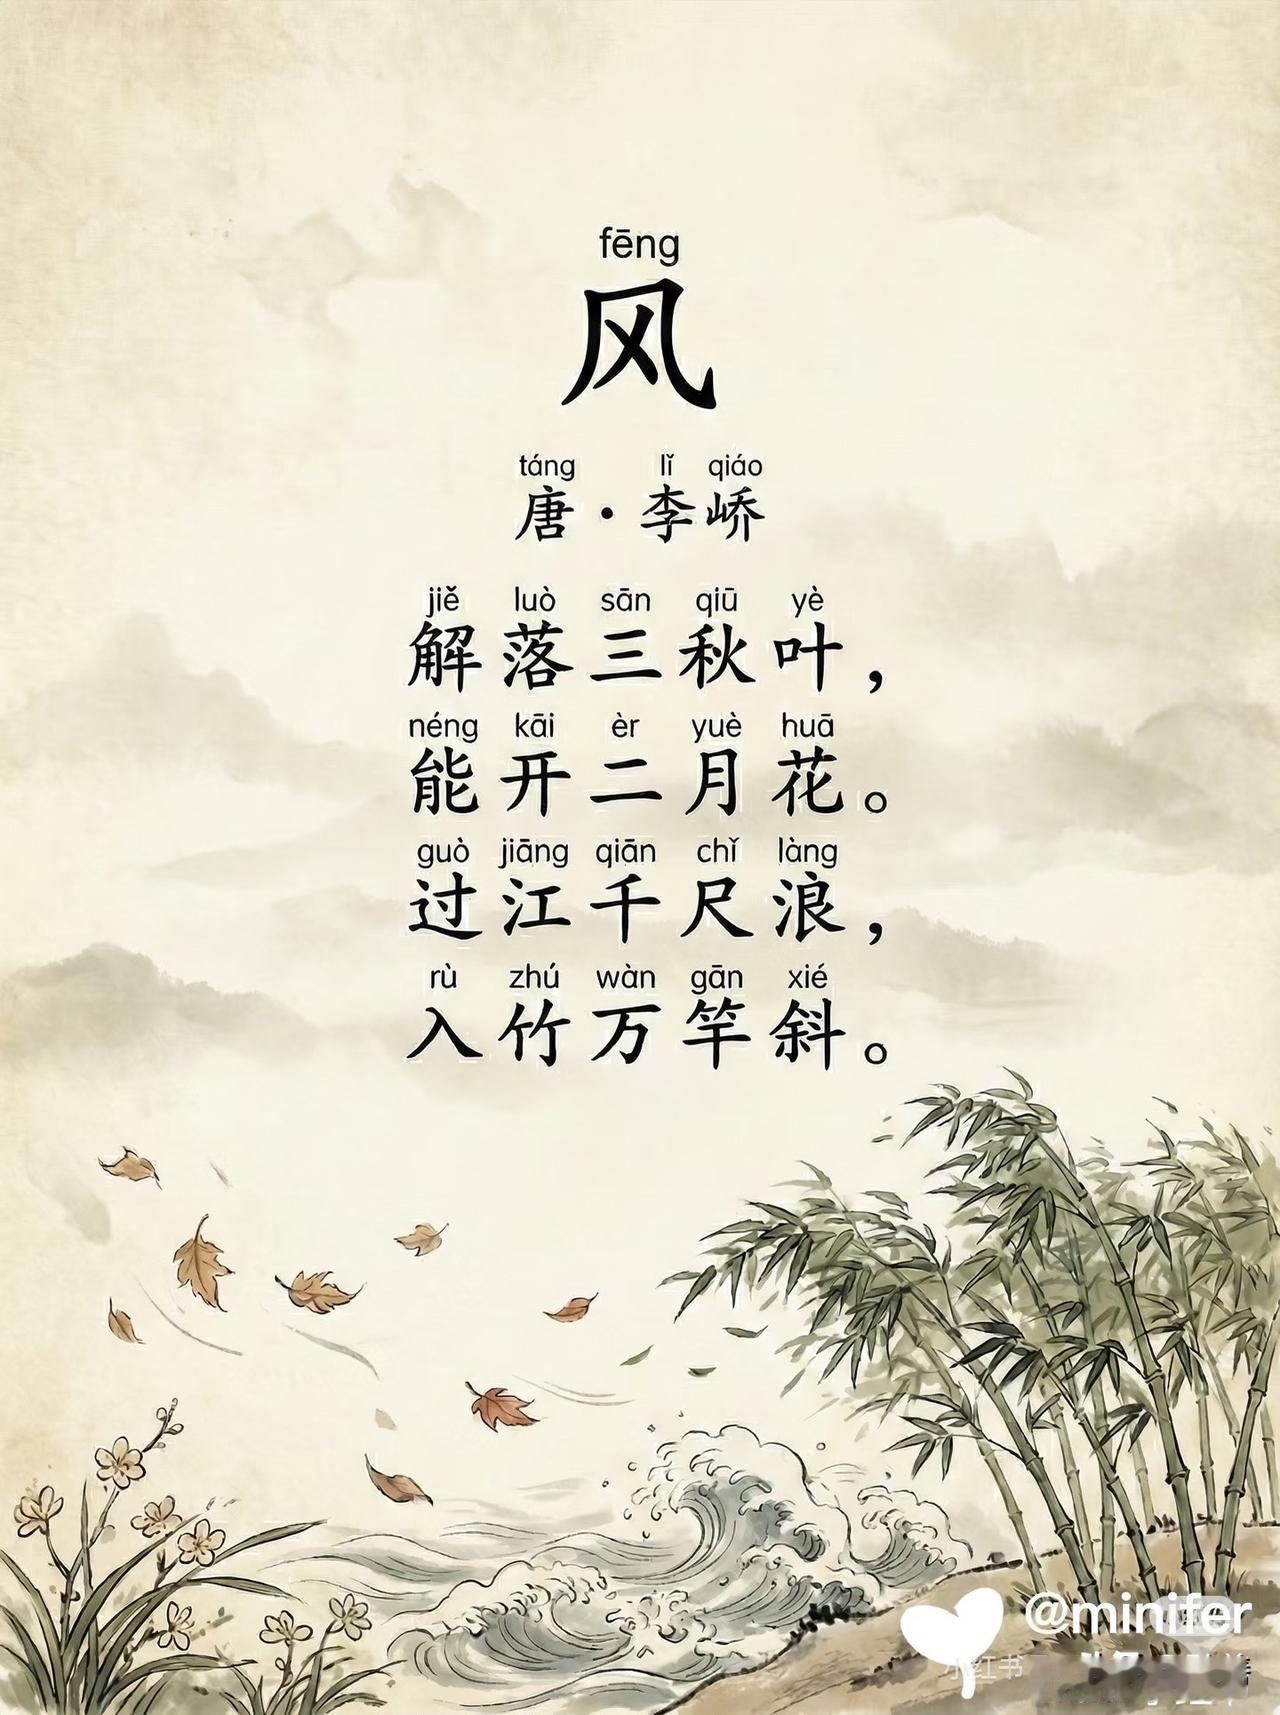 fēng
风
táng lǐ qiáo
唐·李峤
jiě luò sān qiū yè
解落三秋叶，
néng kāi èr yuè huā
能开二月花。
guò jiāng qiān chǐ làng
过江千尺浪，
rù zhú wàn gān xié
入竹万竿斜。
@minifer
小红书